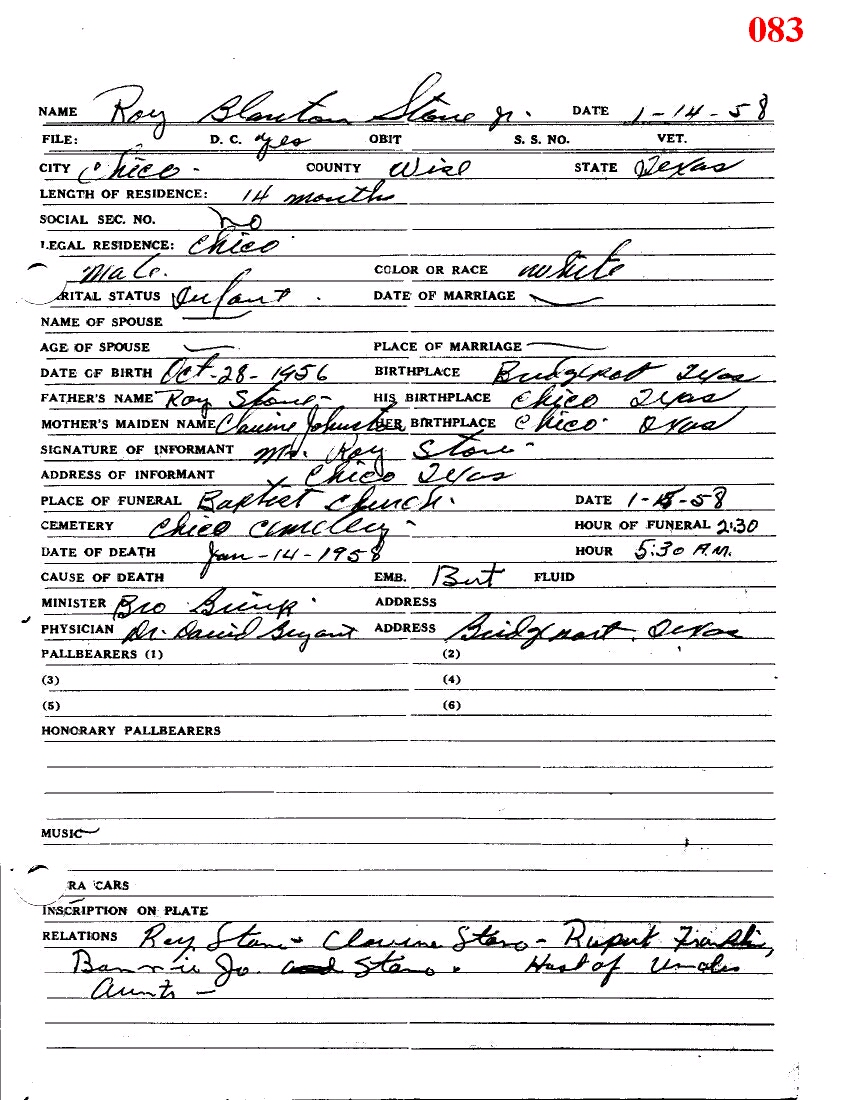 083
NAME Roy Blanton Stone Jr. DATE 1-14-58
FILE: D. C. yes OBIT S. S. NO. VET.
CITY Chico - COUNTY Wise STATE Texas
LENGTH OF RESIDENCE: 14 months
SOCIAL SEC. NO. no
LEGAL RESIDENCE: Chico
Male. COLOR OR RACE white
RITAL STATUS Infant . DATE OF MARRIAGE
NAME OF SPOUSE
AGE OF SPOUSE PLACE OF MARRIAGE
DATE OF BIRTH Oct-28-1956 BIRTHPLACE Bridgeport Texas
FATHER'S NAME Roy Stone - HIS BIRTHPLACE Chico Texas
MOTHER'S MAIDEN NAME HER BIRTHPLACE Chico Texas
SIGNATURE OF INFORMANT Mr. Roy Stone
ADDRESS OF INFORMANT Chico Texas
PLACE OF FUNERAL Baptist Church. DATE 1-15-58
CEMETERY Chico Cemetery - HOUR OF FUNERAL 2:30
DATE OF DEATH Jan-14-1958 HOUR 5:30 A.M.
CAUSE OF DEATH EMB. Burt FLUID
MINISTER Bro ADDRESS
PHYSICIAN Dr. David Bryant ADDRESS Bridgeport, Texas
PALLBEARERS (1) (2)
(3) (4)
(5) (6)
HONORARY PALLBEARERS
MUSIC
RA CARS
INSCRIPTION ON PLATE
RELATIONS Roy Stone - Stone - Rupert Franklin,
Jo. Stone. Host of Uncles
Aunts -